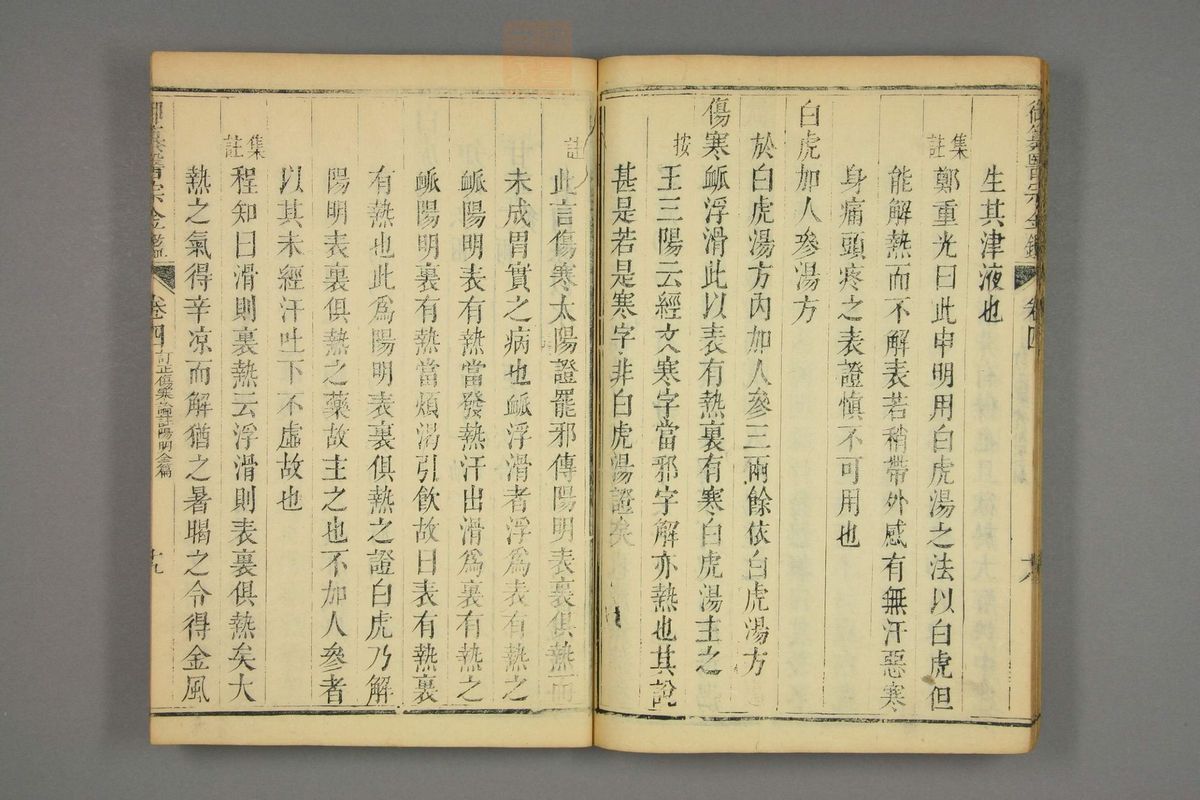 御纂醫宗金鑑 卷四 十八
生其津液也
集註 鄭重光曰此申明用白虎湯之法以白虎但
能解熱而不解表若稍帶外感有無汗惡寒
身痛頭疼之表證慎不可用也
白虎加人參湯方
於白虎湯方內加人參三兩餘依白虎湯方
傷寒衇浮滑此以表有熱裏有寒白虎湯主之
按 王三陽云經文寒字當邪字解亦熱也其說
甚是若是寒字非白虎湯證矣
註 此言傷寒太陽證罷邪傳陽明表裏俱熱而
未成胃實之病也衇浮滑者浮為表有熱之
衇陽明表有熱當發熱汗出滑為裏有熱之
衇陽明裏有熱當煩渴引飲故曰表有熱裏
有熱也此為陽明表裏俱熱之證白虎乃解
陽明表裏俱熱之藥故主之也不加人參者
以其未經汗吐下不虛故也
集註 程知曰滑則裏熱云浮滑則表裏俱熱矣大
熱之氣得辛凉而解猶之暑暍之令得金風
御纂醫宗金鑑 卷四 訂正傷寒論註陽明全篇 十九